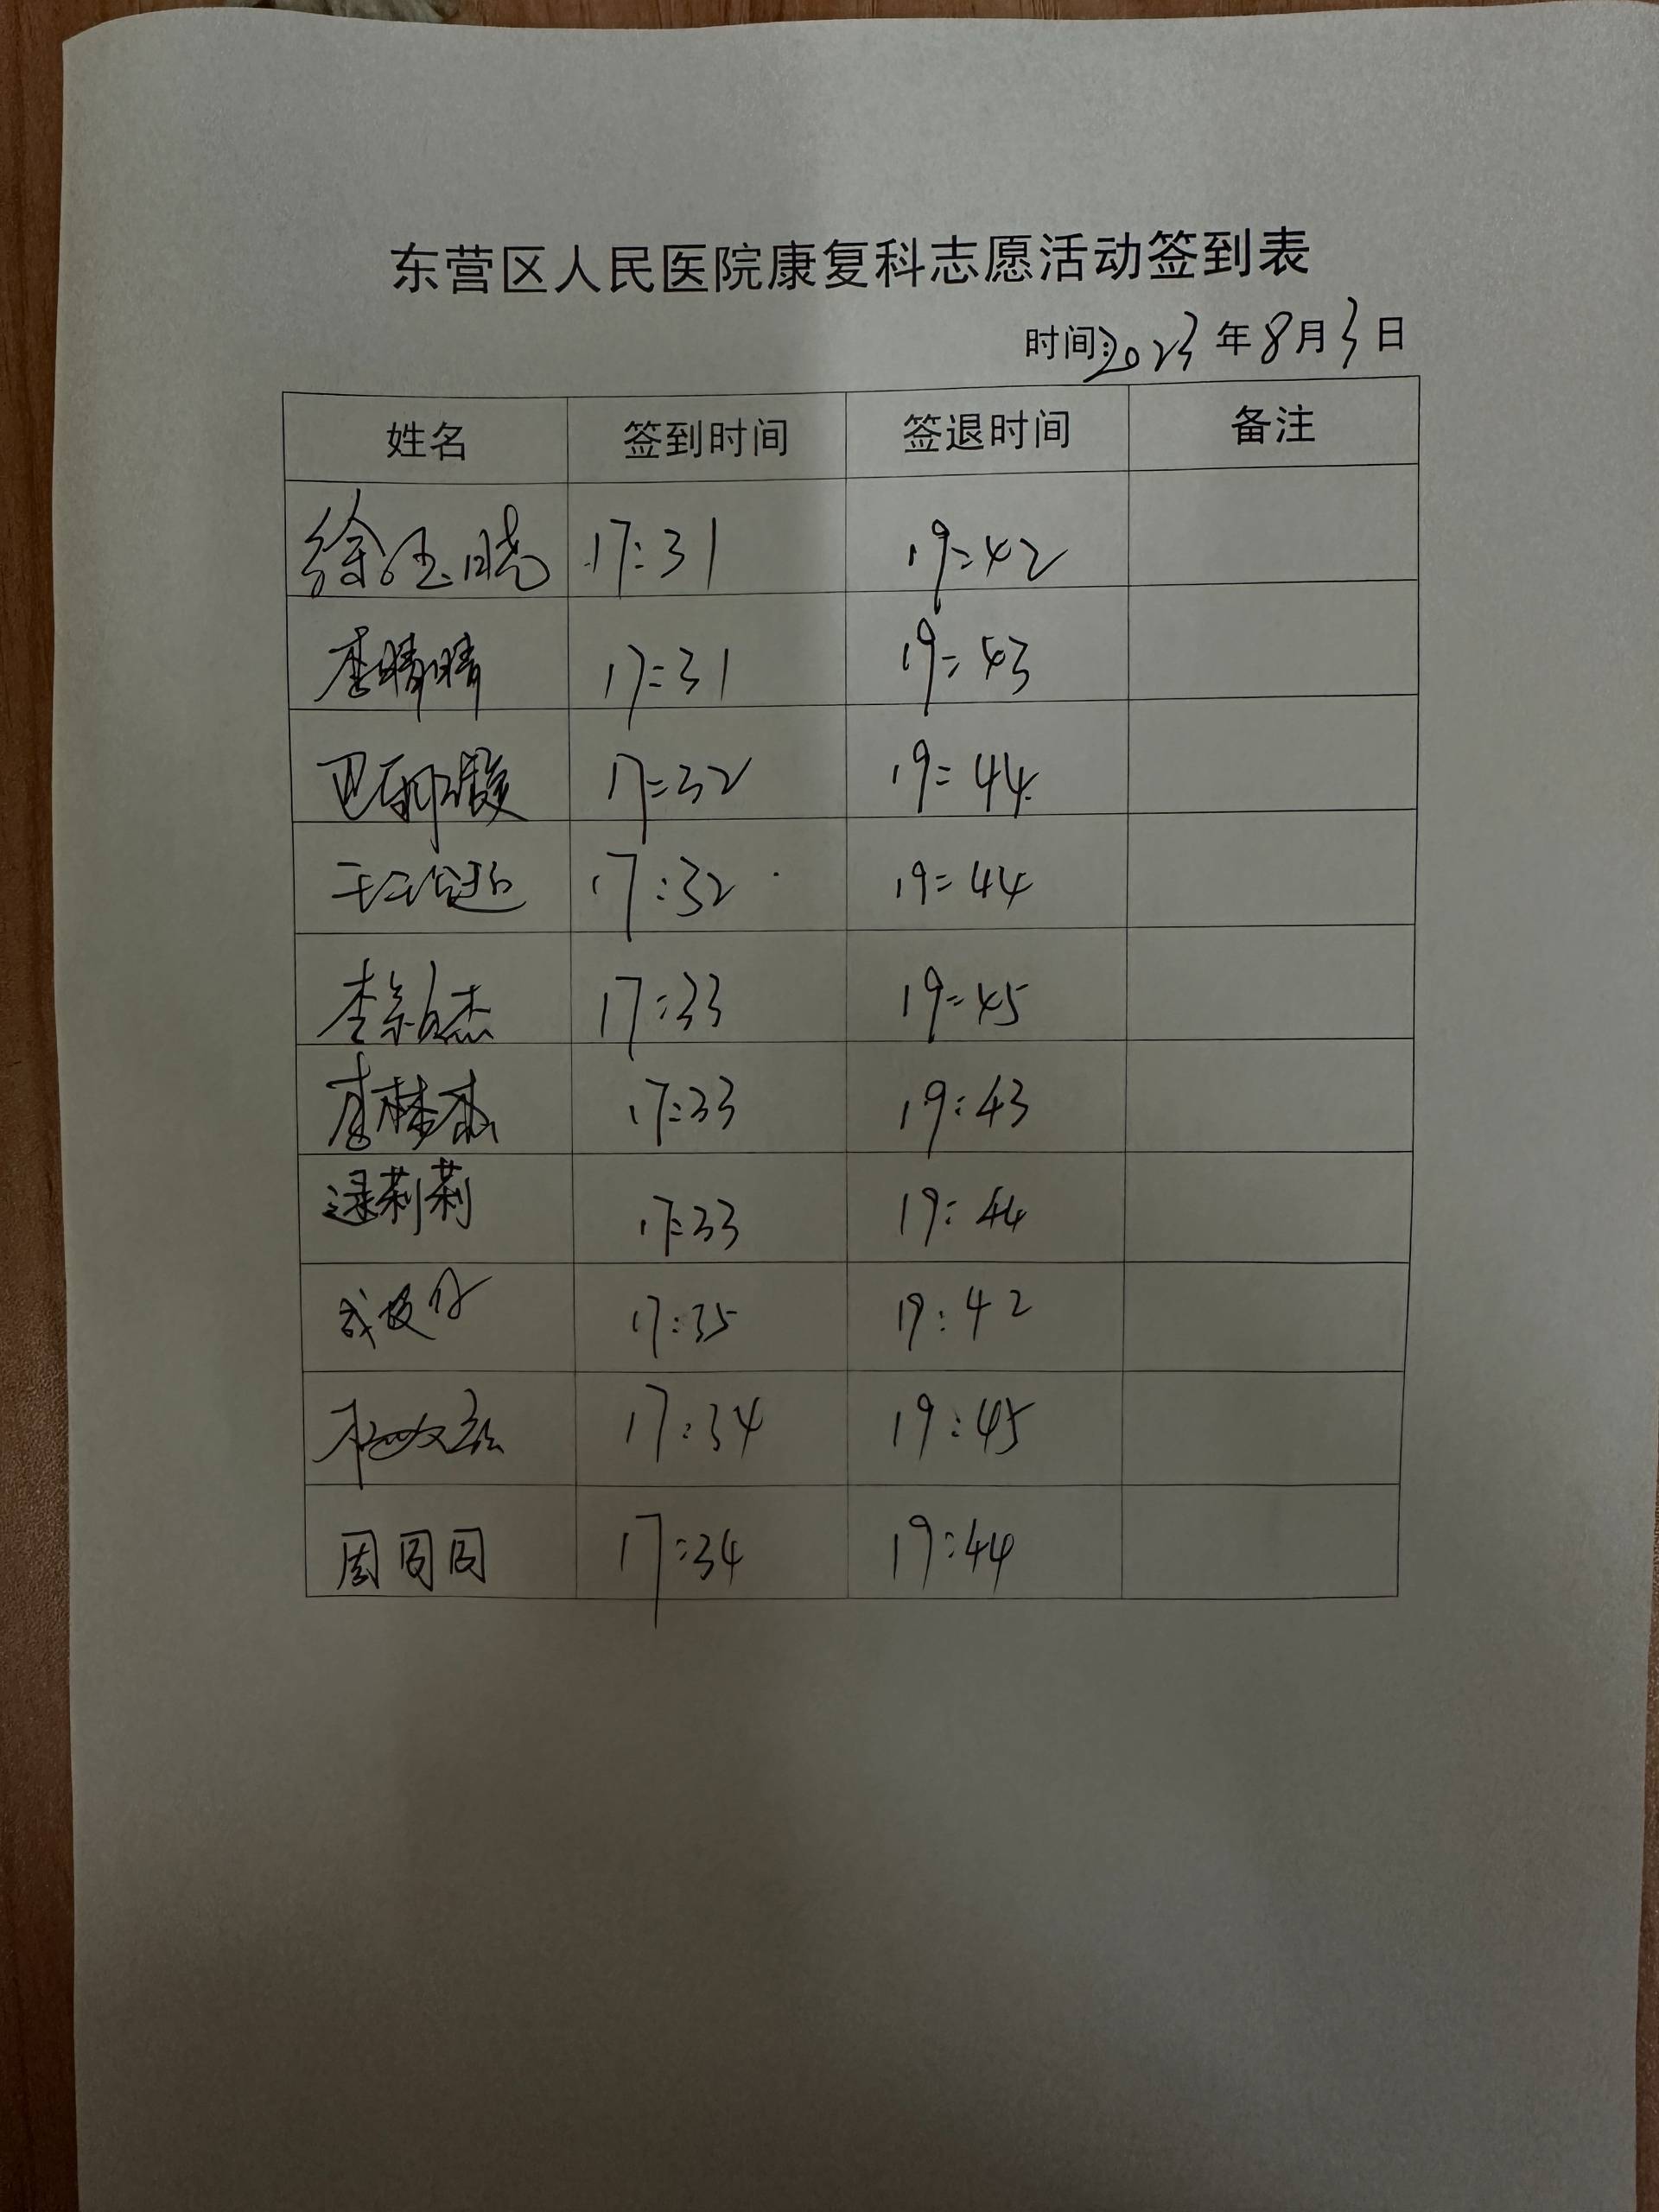 东营区人民医院康复科志愿活动签到表
时间:2023年8月3日
姓名 签到时间 签退时间 备注
徐玉晓 17:31 19:42
李晴晴 17:31 19:43
17:32 19:44
17:32 19:44
杰 17:33 19:45
李梦杰 17:33 19:43
逯莉莉 17:33 19:44
17:35 19:42
17:34 19:45
周同同 17:34 19:44